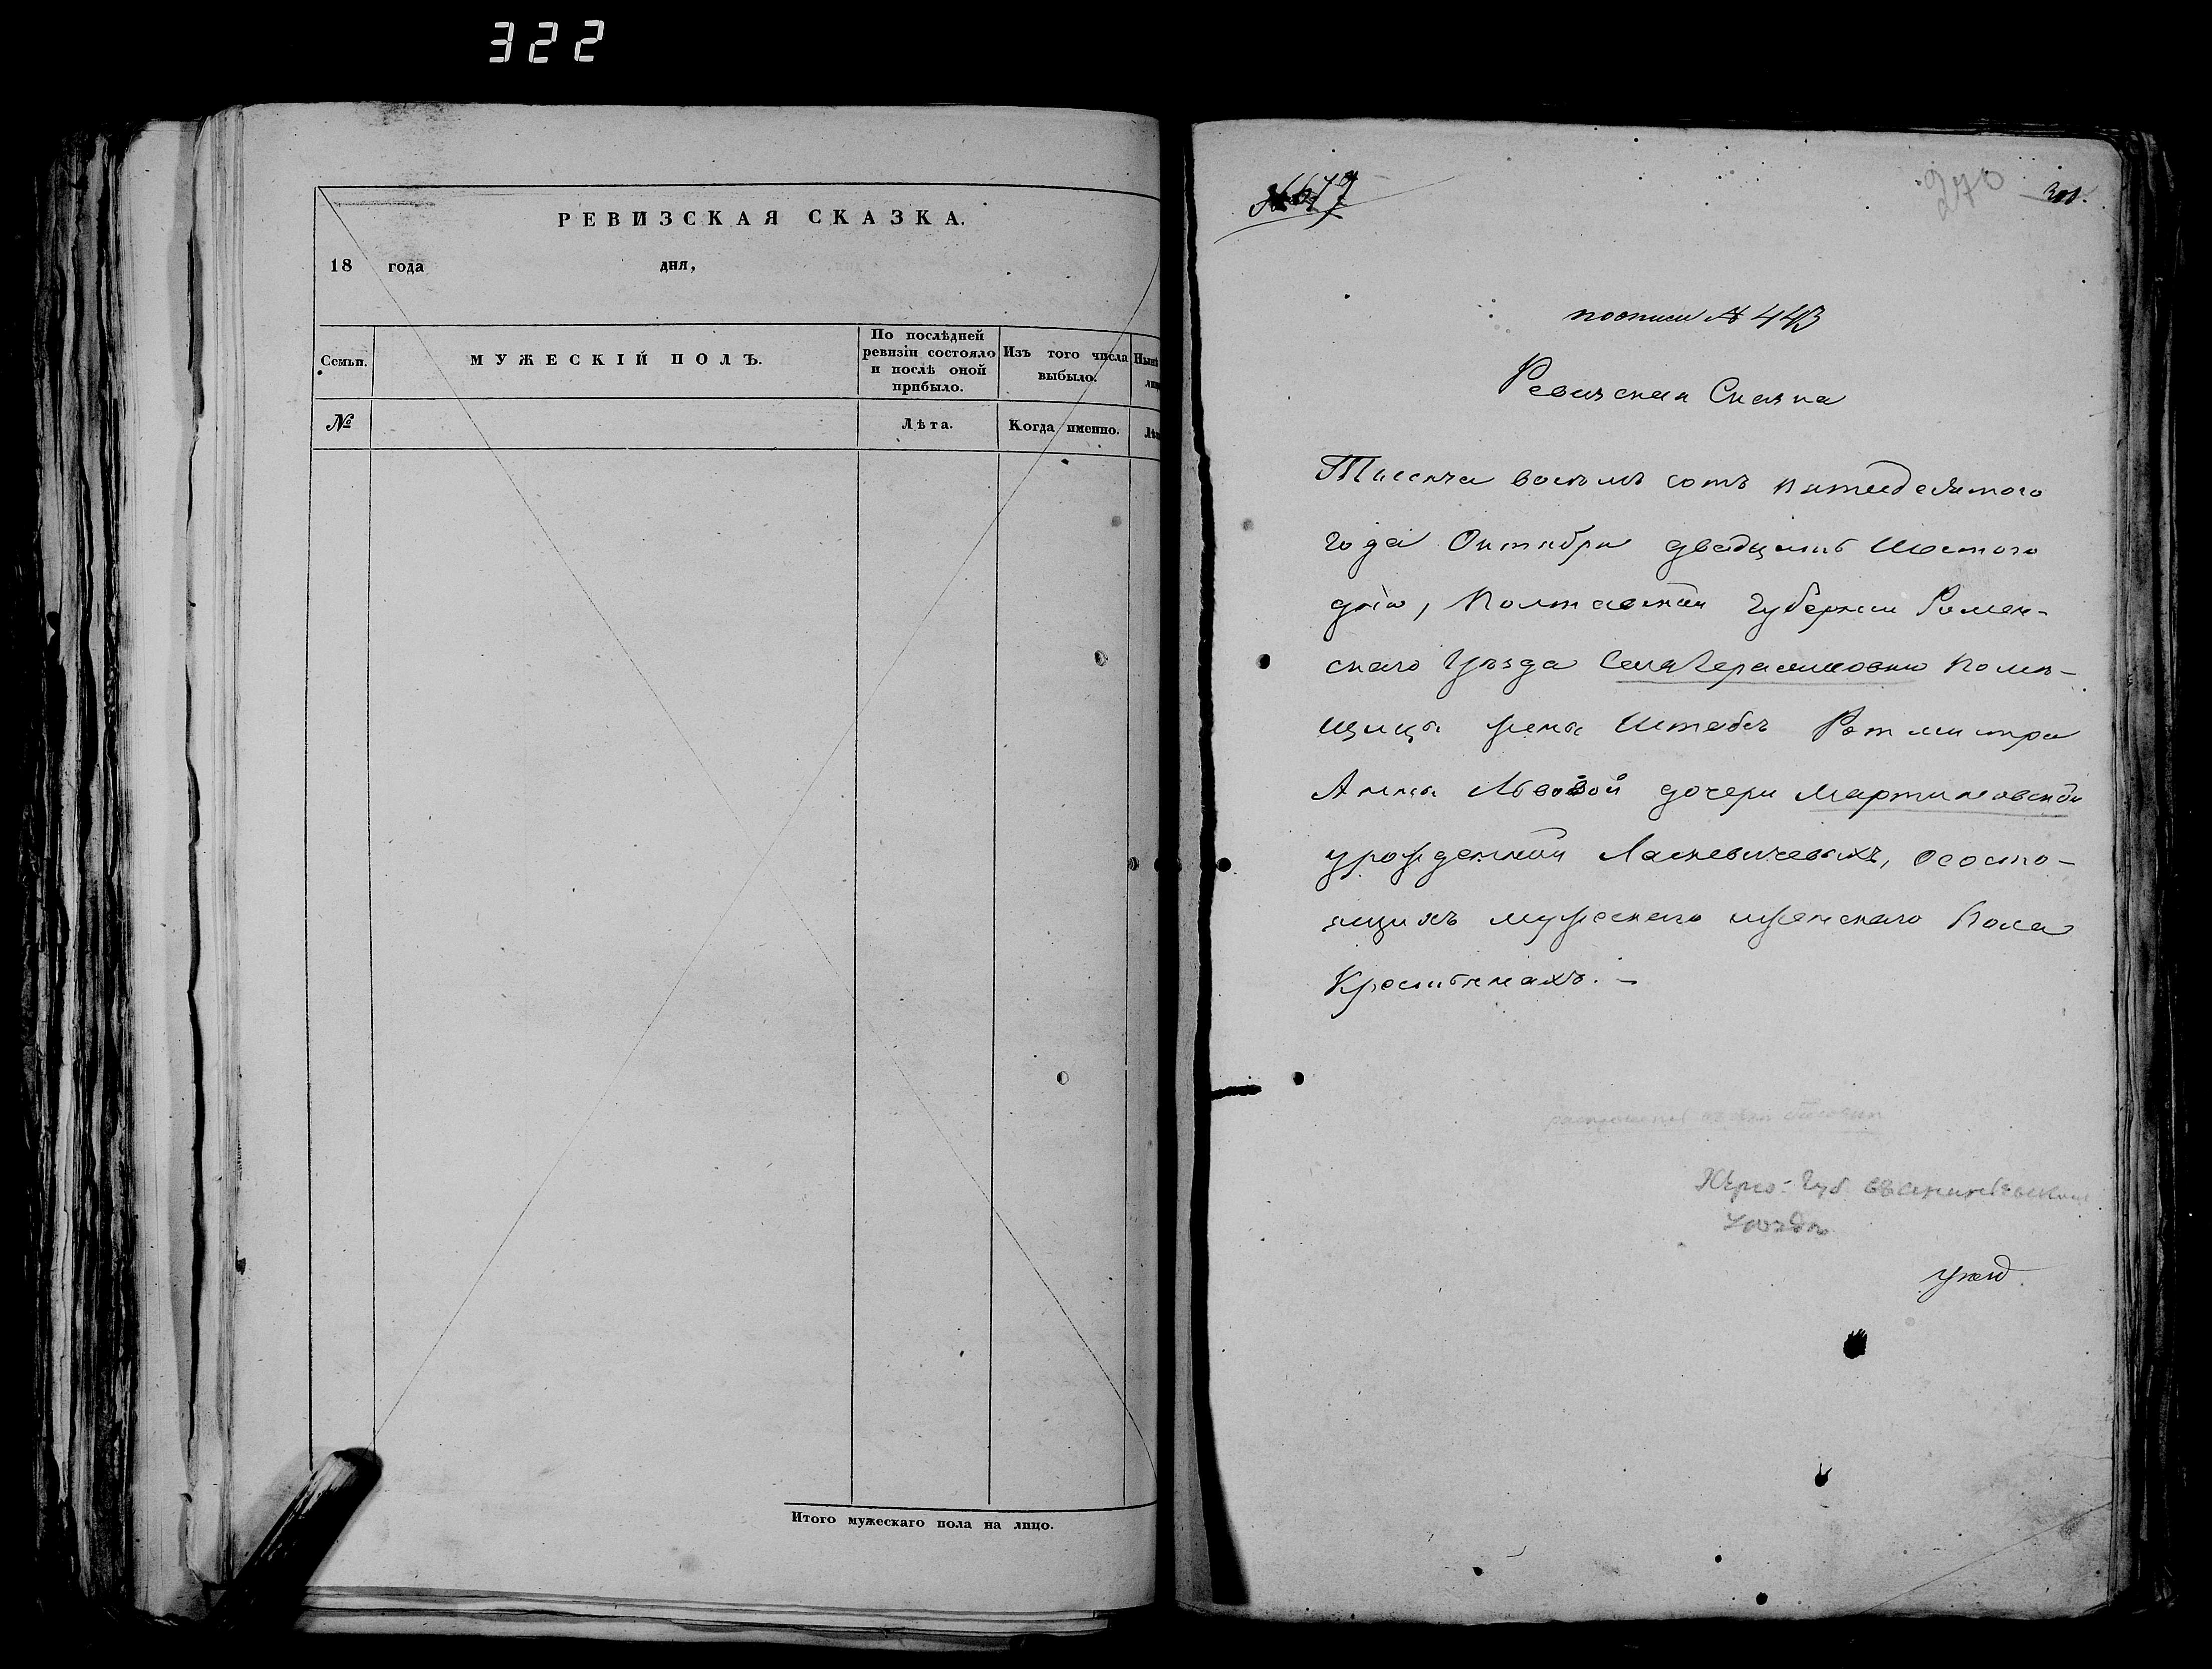 322
РЕВИЗСКАЯ СКАЗКА.
18 года дня,
Семьи.
МУЖЕСКІЙ ПОЛЪ.
По послѣдней ревизіи состояло и послѣ оной прибыло.
Изъ того числа выбыло.
№
Лѣта.
Когда именно.
Итого мужескаго пола на лицо.
270
поописи № 443
Ревизская Сказка
Тысяча восемь сотъ пятидесятого
года Октября двадцать шестого
дня, Полтавской губернии Ромен-
скаго Уѣзда Села Герасимовки Помѣ-
щицы жены Штабсъ Ротмистра
Анны Львовой дочери Мартиновской
урожденной Ласкевичевыхъ, осостоя-
ящихъ мужескаго иженскаго Пола
Крестьянахъ. —
Херсо: Губ.
уѣзда